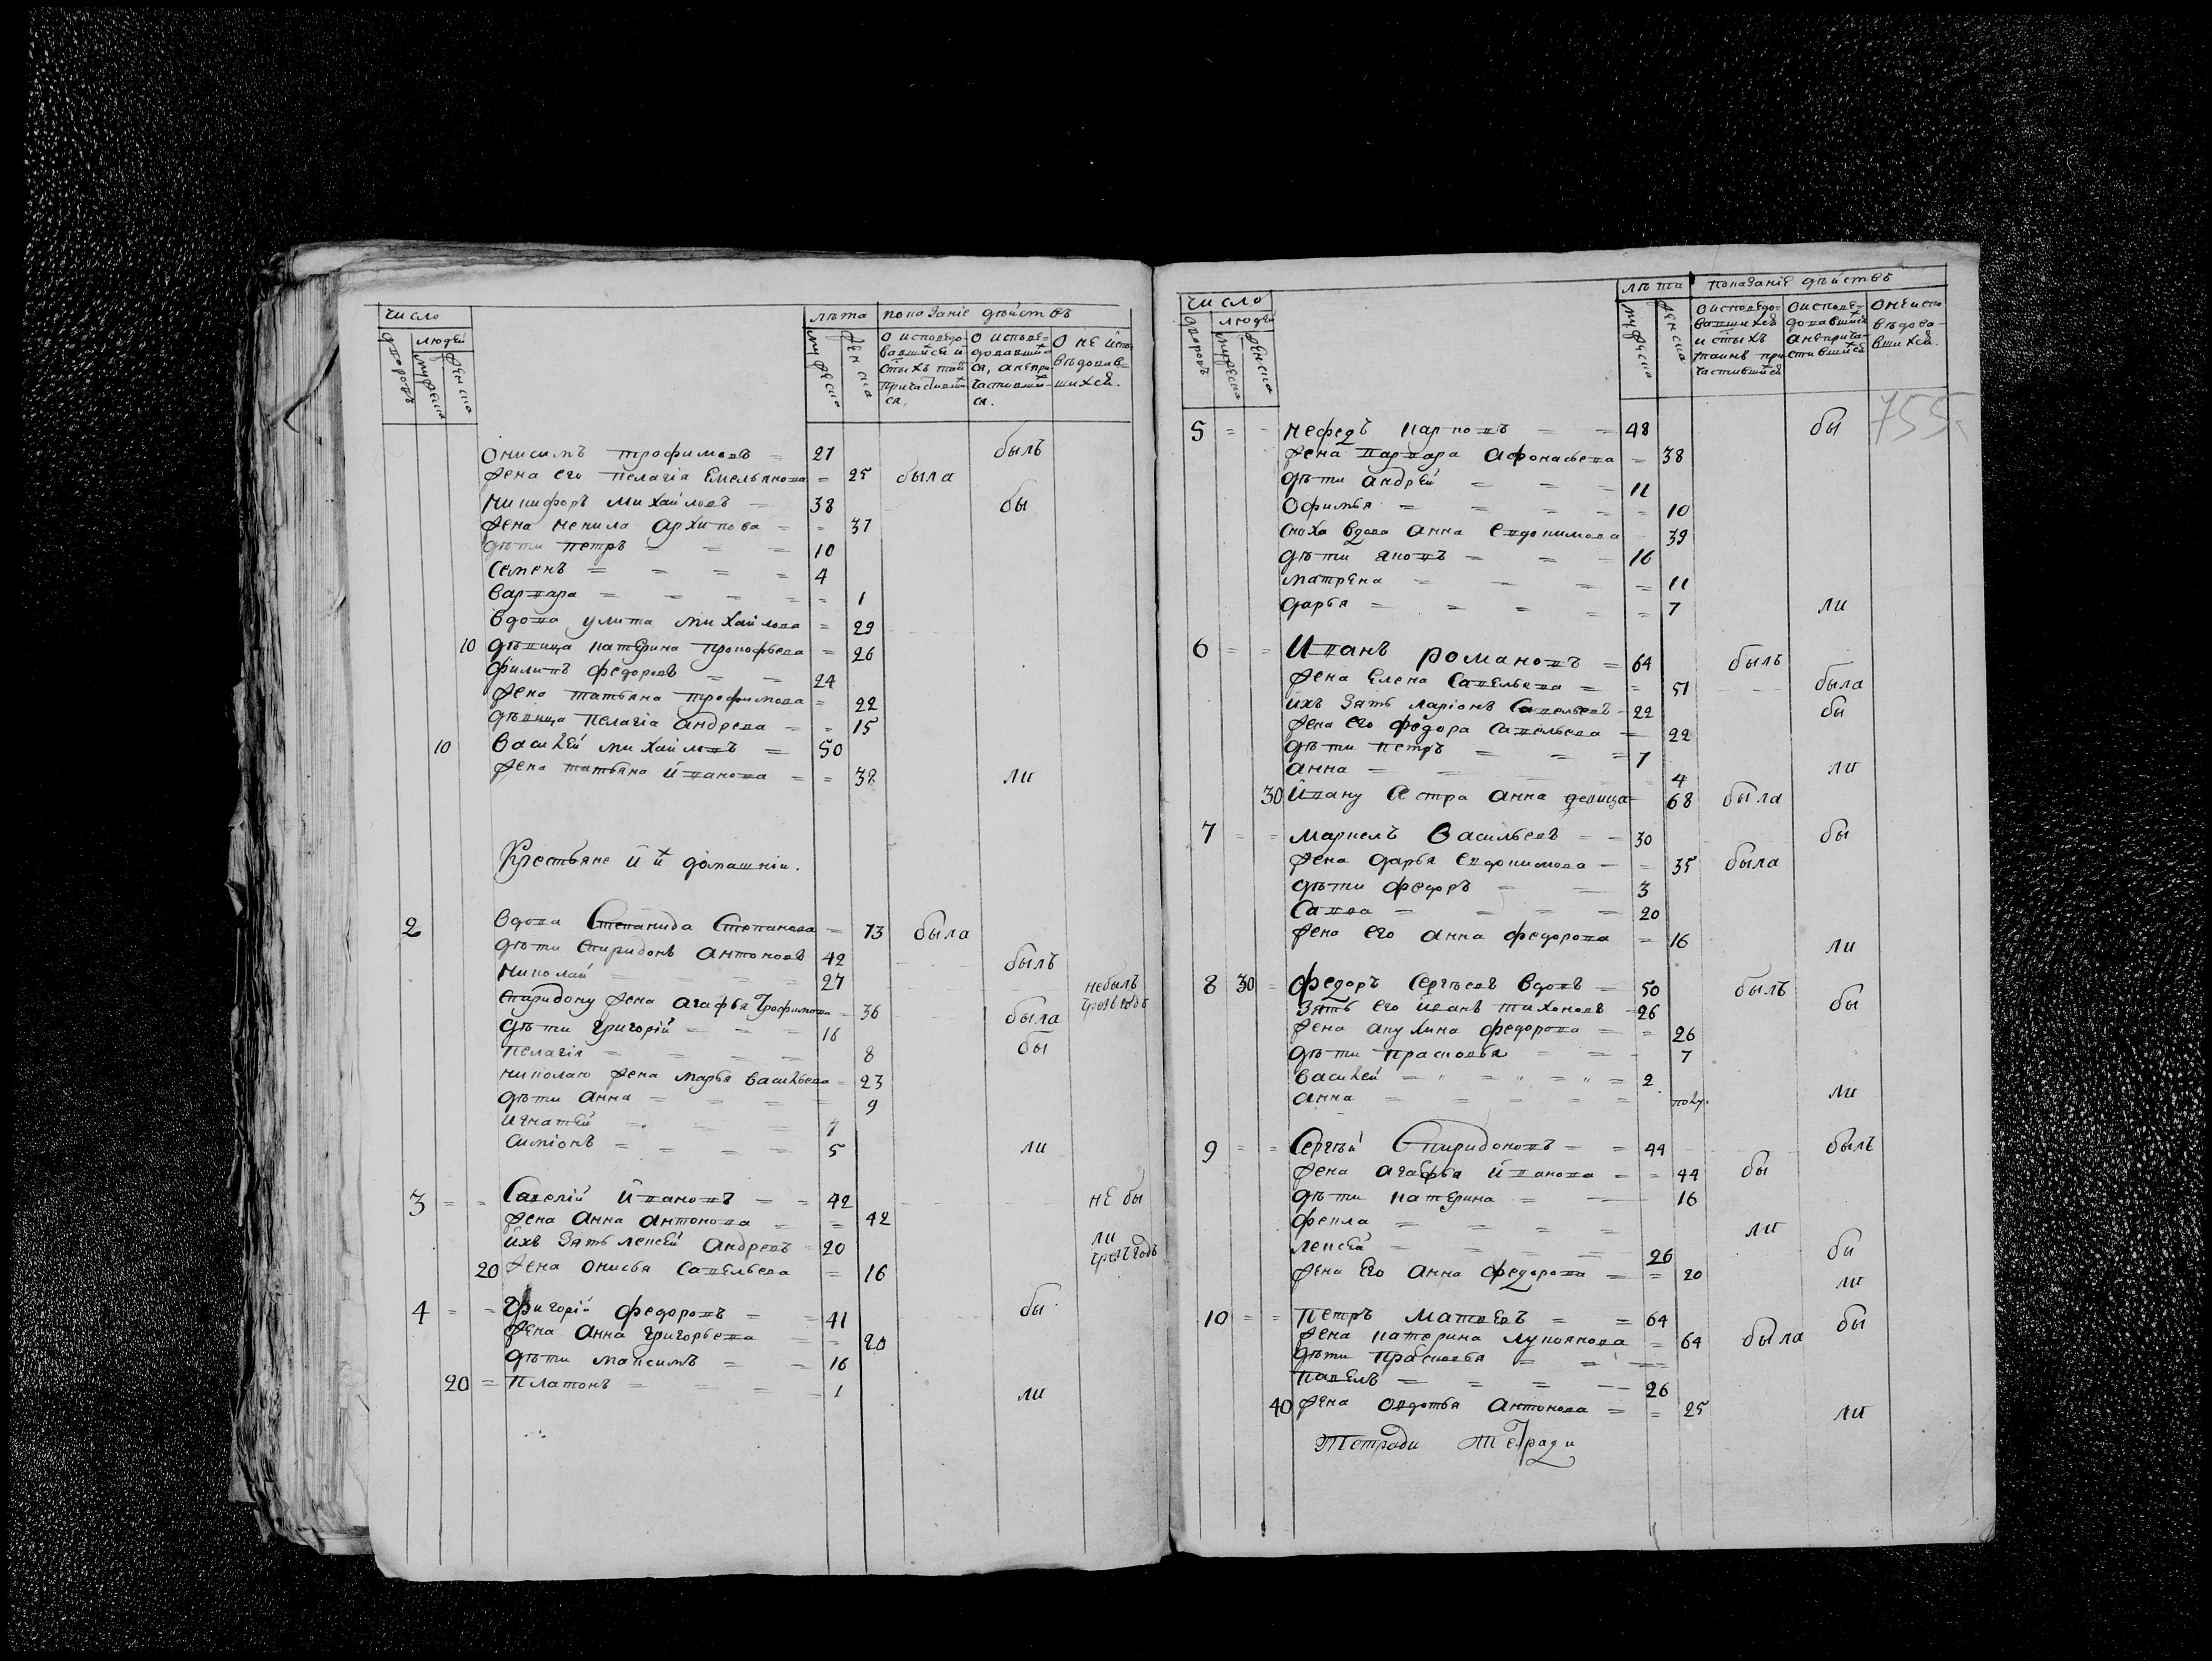 число
лѣта показаніе дѣйствъ
дворовъ людей
мужеска женска
мужеска женска
О исповѣдо- О исповѣ- О не испо-
вавшихся и довавших- вѣдовав-
стыхъ таи ся, а непри- шихся.
причастивших частивших-
ся, ся.
Онисимъ трофимовъ = 27 былъ
жена его пелагіа Емельянова = 25 была
Никифоръ михайловъ = 38 бы
жена ненила архипова = = 37
дѣти петръ = = = 10
Семенъ = = = = 4
варвара = = = = = 1
вдова улита михайлова = 29
10 дѣвица катерина прокофьева = 26
филипъ федоровъ = = 24
жена татьяна трофимова = 22
дѣвица пелагіа андрева = = 15
10 василей михайловъ = 50
жена татьяна ивановa = = 38 ли
Крестьяне и их домашніи.
2 вдова Степанида Степанова = 73 была
дѣти спиридонъ антоновъ 42 былъ
николай = = 27 небылъ
спиридону жена агафья трофимова = 36 была
дѣти григорій = = = 16 бы
пелагіа = = = = 8
николаю жена марья васильева = 23
дѣти анна = = = = 9
игнатей = = = 7
симіонъ = = = = 5 ли
3 = = Савелій ивановъ = = 42 не бы
жена анна антонова = = 42
ихъ зять лексей андревъ = 20 ли
20 жена онисья савельева = 16
4 = = Григорій федоровъ = = 41 бы
жена анна григорьева = = 20
дѣти максимъ = = 16
20 = платонъ = = = = 1 ли
число
лѣта показаніе дѣйствъ
дворовъ людей
мужеска женска
мужеска женска
О исповѣдо- О исповѣ- О неиспо
вавшихся довавшихся вѣдова-
и стыхъ а неприча- вшихся.
таинъ при стившихся
частившихся
755
5 = - нефедъ карповъ = = 48 бы
жена варвара афонасьева = 38
дѣти андрей = = = 11
Офимья = = = = = 10
сноха вдова анна евдокимова 39
дѣти яковъ = = = 16
матрена = = = = 11
дарья = = = = = 7 ли
6 = = Иванъ романовъ = 64 былъ
жена Елена Савельева = = 51 была
ихъ зять ларіонъ Савельевъ = 22 бы
жена его федора савельева = 22
дѣти петръ = = = 7
анна = 4 ли
30 ивану сестра анна девица = 68 была
7 = = маркелъ васильевъ = = 30 бы
жена дарья евдокимова = = 35 была
дѣти федоръ = = 3
Савва = = = = 20
жена его анна федорова = 16 ли
8 30 = федоръ сергѣевъ вдовъ = 50 былъ
зять его иванъ тихоновъ = 26 бы
жена акулина федорова = = 26
дѣти прасковья = = = 7
василей = " = " = " = 2
анна = = = = = = полу. ли
9 = = Сергѣй Спиридоновъ = = 44 былъ
жена агафья иванова = = 44 бы
дѣти катерина = = 16
фекла = = = = ли
лексей = = = = 26 бы
жена его анна федорова = = 20 ли
10 = = Петръ матвевъ = = 64 бы
жена катерина лукоянова = 64 была
дѣти прасковья = = = =
павелъ = = = = 26
40 жена овдотья антонова = = 25 ли
Тетради Тетради